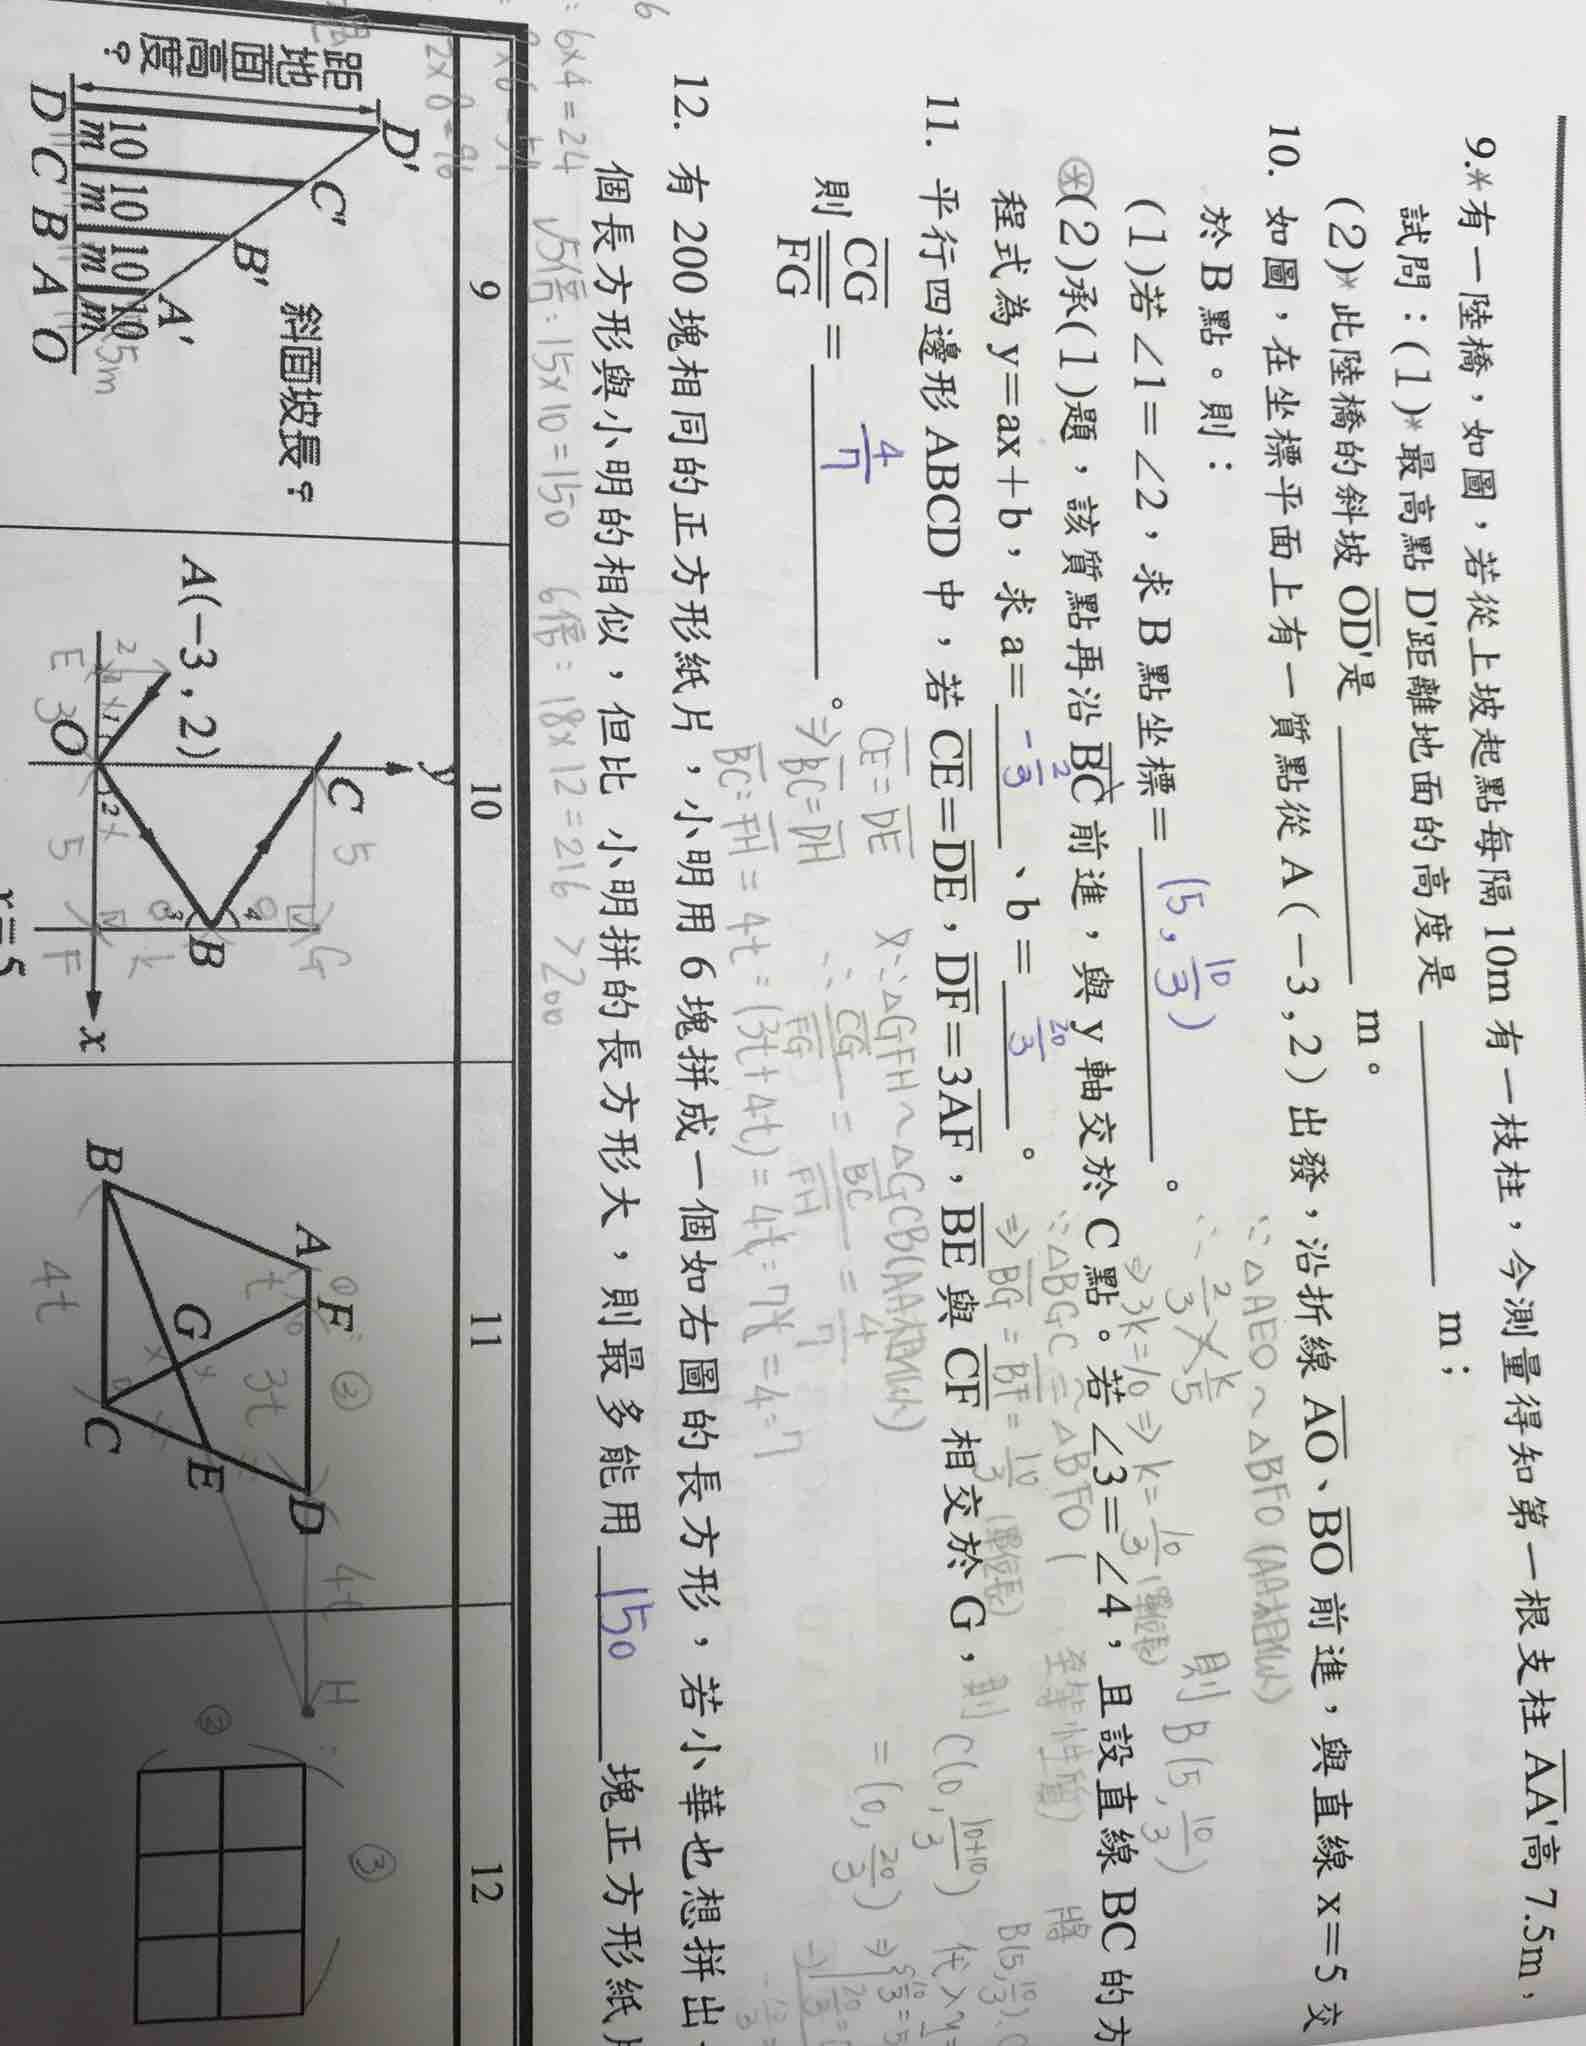 9.*有一陸橋，如圖，若從上坡起點每隔 10m 有一枝柱，今測量得知第一根支柱 AA'高 7.5m，
試問：(1)*最高點 D'距離地面的高度是 ＿＿＿＿ m；
(2)*此陸橋的斜坡 OD'是 ＿＿＿＿ m。
10. 如圖，在坐標平面上有一質點從 A(−3,2) 出發，沿折線 AO、BO 前進，與直線 x=5 交
於 B 點。則：
(1)若∠1=∠2，求 B 點坐標= (5, 10/3) 。
(2)承(1)題，該質點再沿 BC 前進，與 y 軸交於 C 點。若∠3=∠4，且設直線 BC 的方
程式為 y=ax+b，求 a= -2/3 、b= 20/3 。
11. 平行四邊形 ABCD 中，若 CE=DE，DF=3AF，BE 與 CF 相交於 G，
則 CG/FG = 4/7 。
12. 有 200 塊相同的正方形紙片，小明用 6 塊拼成一個如右圖的長方形，若小華也想拼出
個長方形與小明的相似，但比 小明拼的長方形大，則最多能用 150 塊正方形紙
∵△AEO~△BFO (AA相似)
∴ 2/3 = k/5
⇒3k=10⇒k=10/3 (單位長)
則 B(5, 10/3)
∵△BGC≅△BFO (
全等性質)
⇒BG=BF=10/3 (單位長)
則 C(0, 10+10/3)
=(0, 20/3)
將 B(5, 10/3)、C
代入y=
CE=DE
⇒BC=DH
又∵△GFH~△GCB(AA相似)
∴ CG/FG = BC/FH = 4/7
BC:FH=4t:(3t+4t)=4t:7t=4:7
6×4=24
√5倍:15×10=150
6倍:18×12=216 >200
9
10
11
12
距地面高度?
斜面坡長?
D'
C'
B'
A'
10m
10m
10m
10m
7.5m
D C B A O
A(−3,2)
y
C
5
G
E
3
O
2
1
2
5
F
k
3
4
B
x
x=5
A
F
D
B
C
G
E
t
3t
4t
4t
H
②
③
②